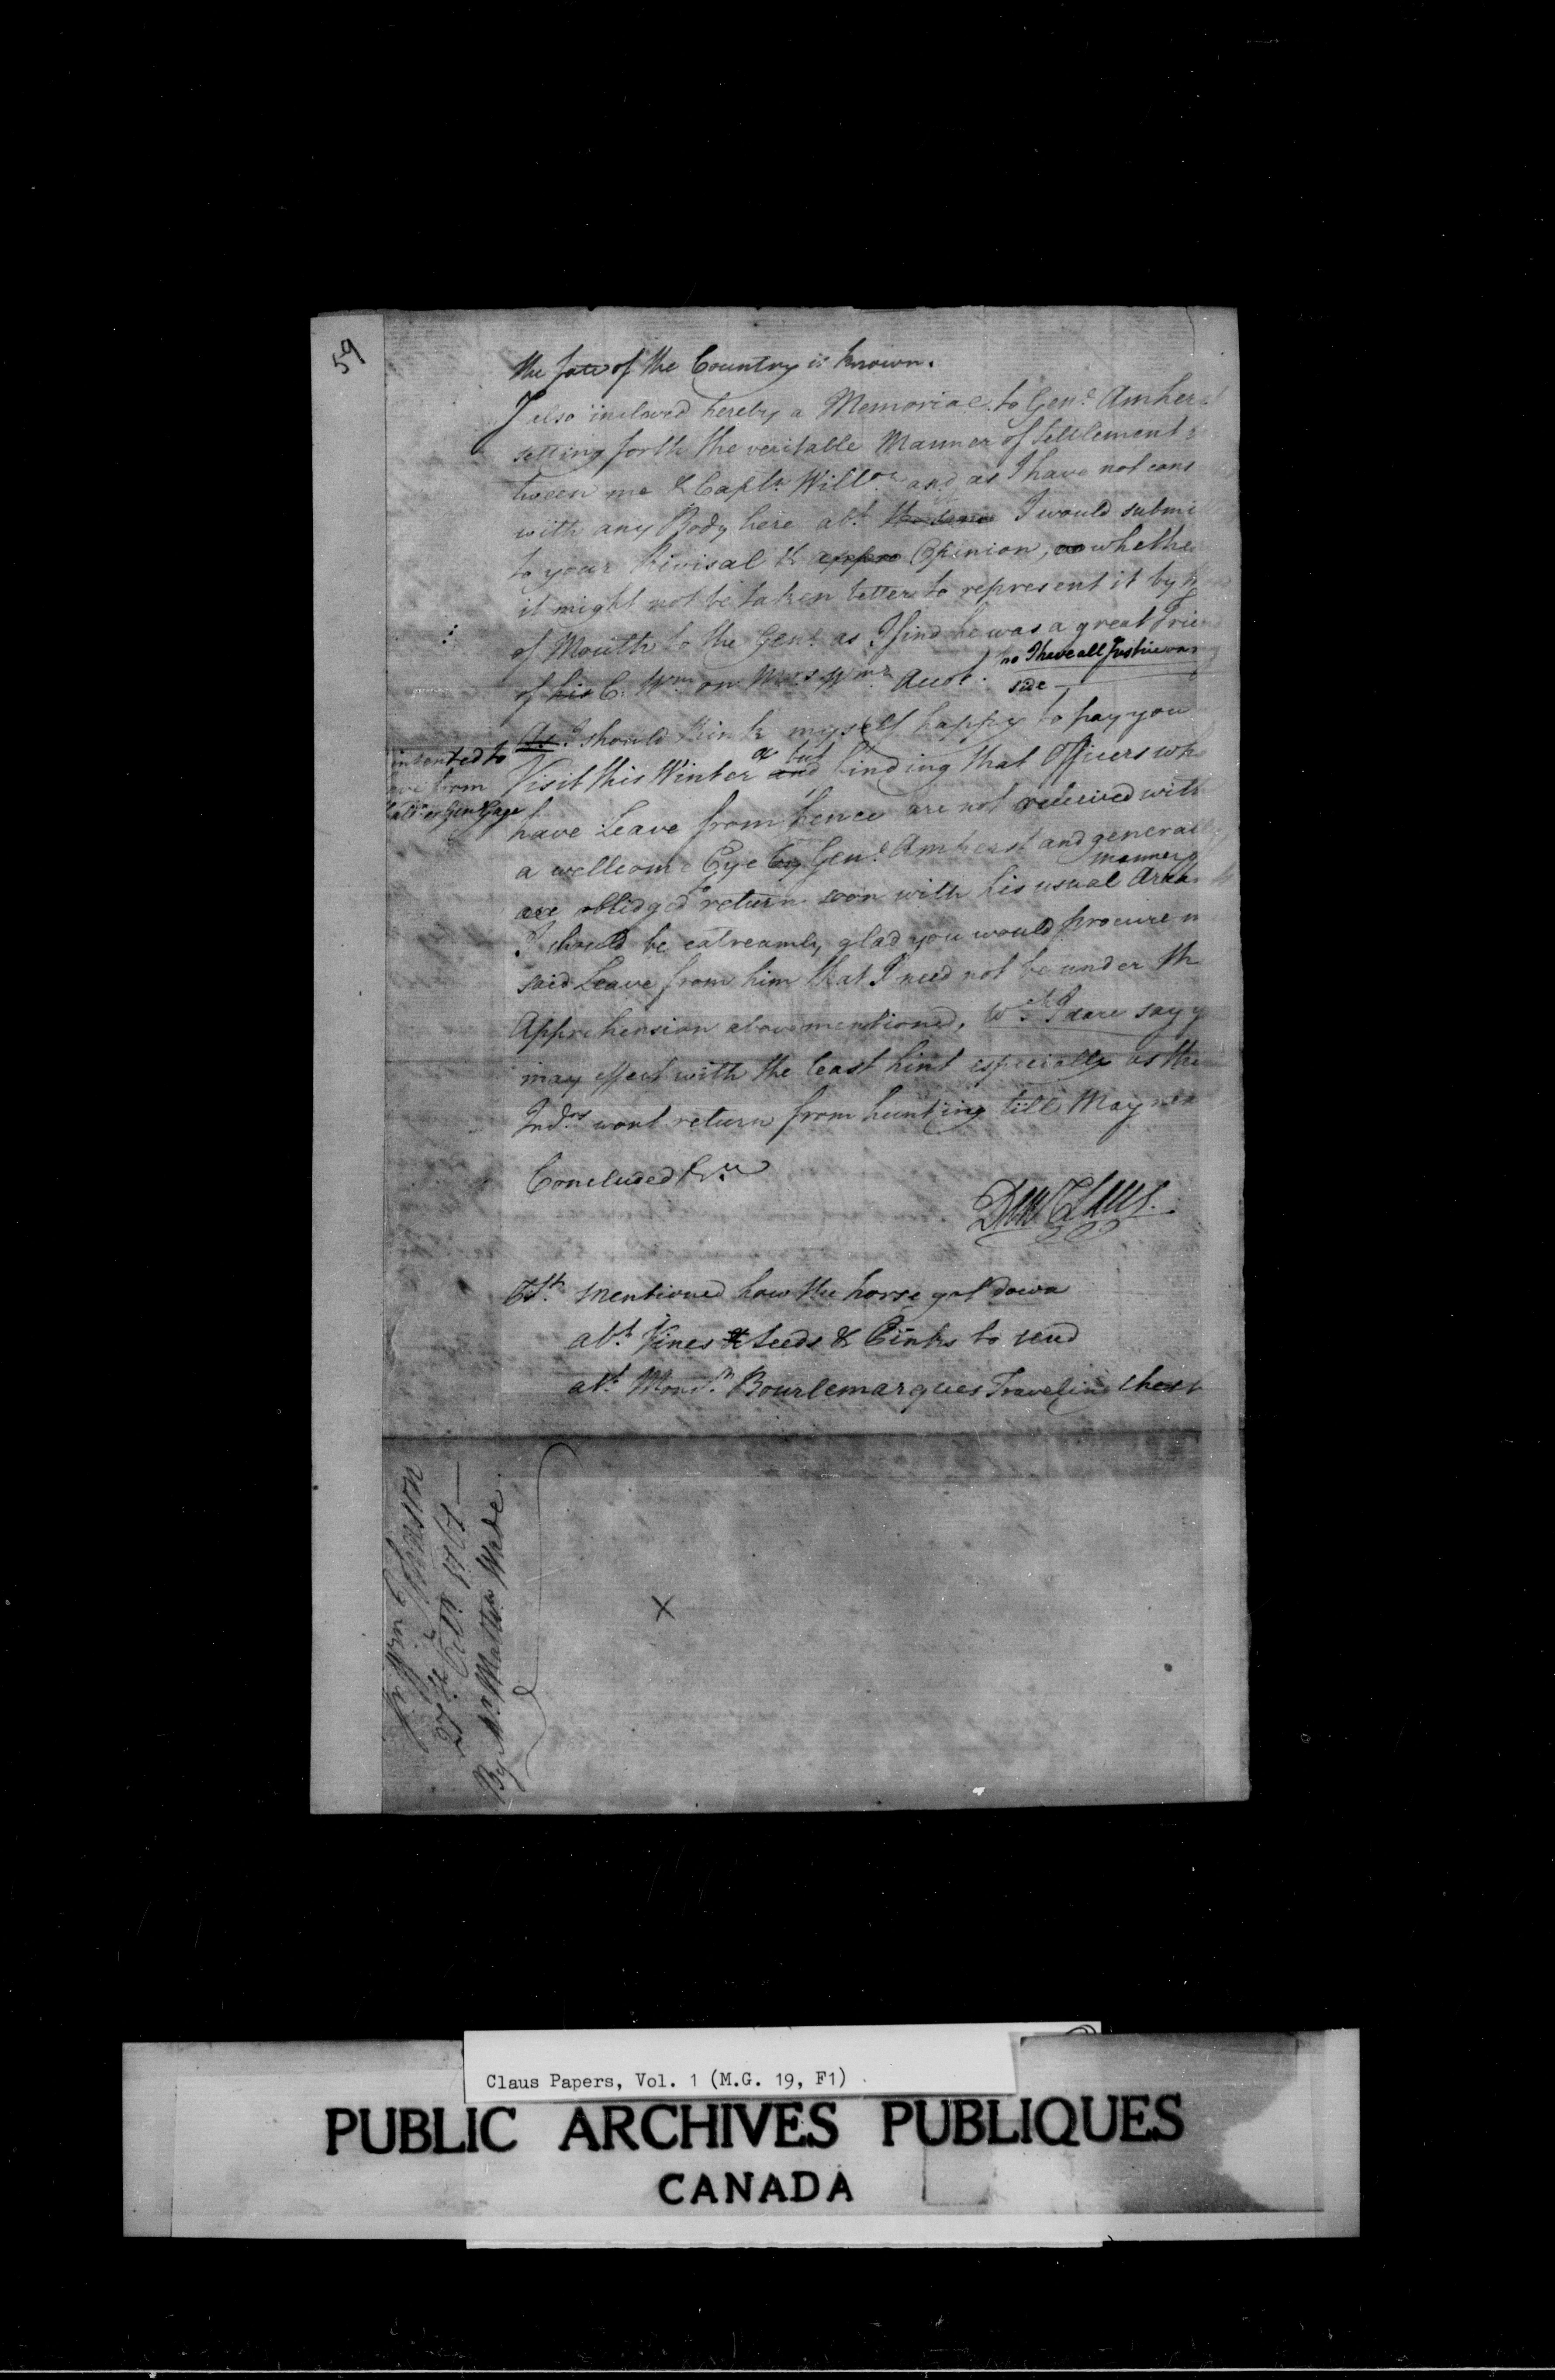 59
the fate of the Country is known.
I also inclosed hereby a Memorial to Gen.l Amherst
setting forth the veritable Manner of Settlement
tween me & Capt.n Will.ms and as I have not cons
with any Body here ab.t I would submi
to your Rivisal & appro Opinion, as whether
it might not be taken better to represent it by
of Mouth to the Gen.l as I find he was a great Frien
of his C. Wm on Mrs Wms Acco.t
no I have all Justice on my
side
As I should think myself happy to pay you
intented to
from
Gen Gage
Visit this Winter & but and finding that Officers who
have Leave from hence are not received with
a wellcome Eye by Gen.l Amherst and generally
manner
are oblidged to return soon with his usual
I should be extreamly glad you would procure m
said Leave from him that I need not be under the
Apprehension abovementioned, w.ch I dare say y
may effect with the least hint especially as the
Ind.ns wont return from hunting till May
Concluded &c.a
Dan Claus.
mentioned how the horse got down
ab.t Vines & Seeds & Pinks to send
ab.t Mons.r Bourlemarques Traveling Chest
Sr. Wm Johnson
27.th Oct.r 1761
By Mr. Matthw Wade
x
Claus Papers, Vol. 1 (M.G. 19, F1)
PUBLIC ARCHIVES PUBLIQUES
CANADA